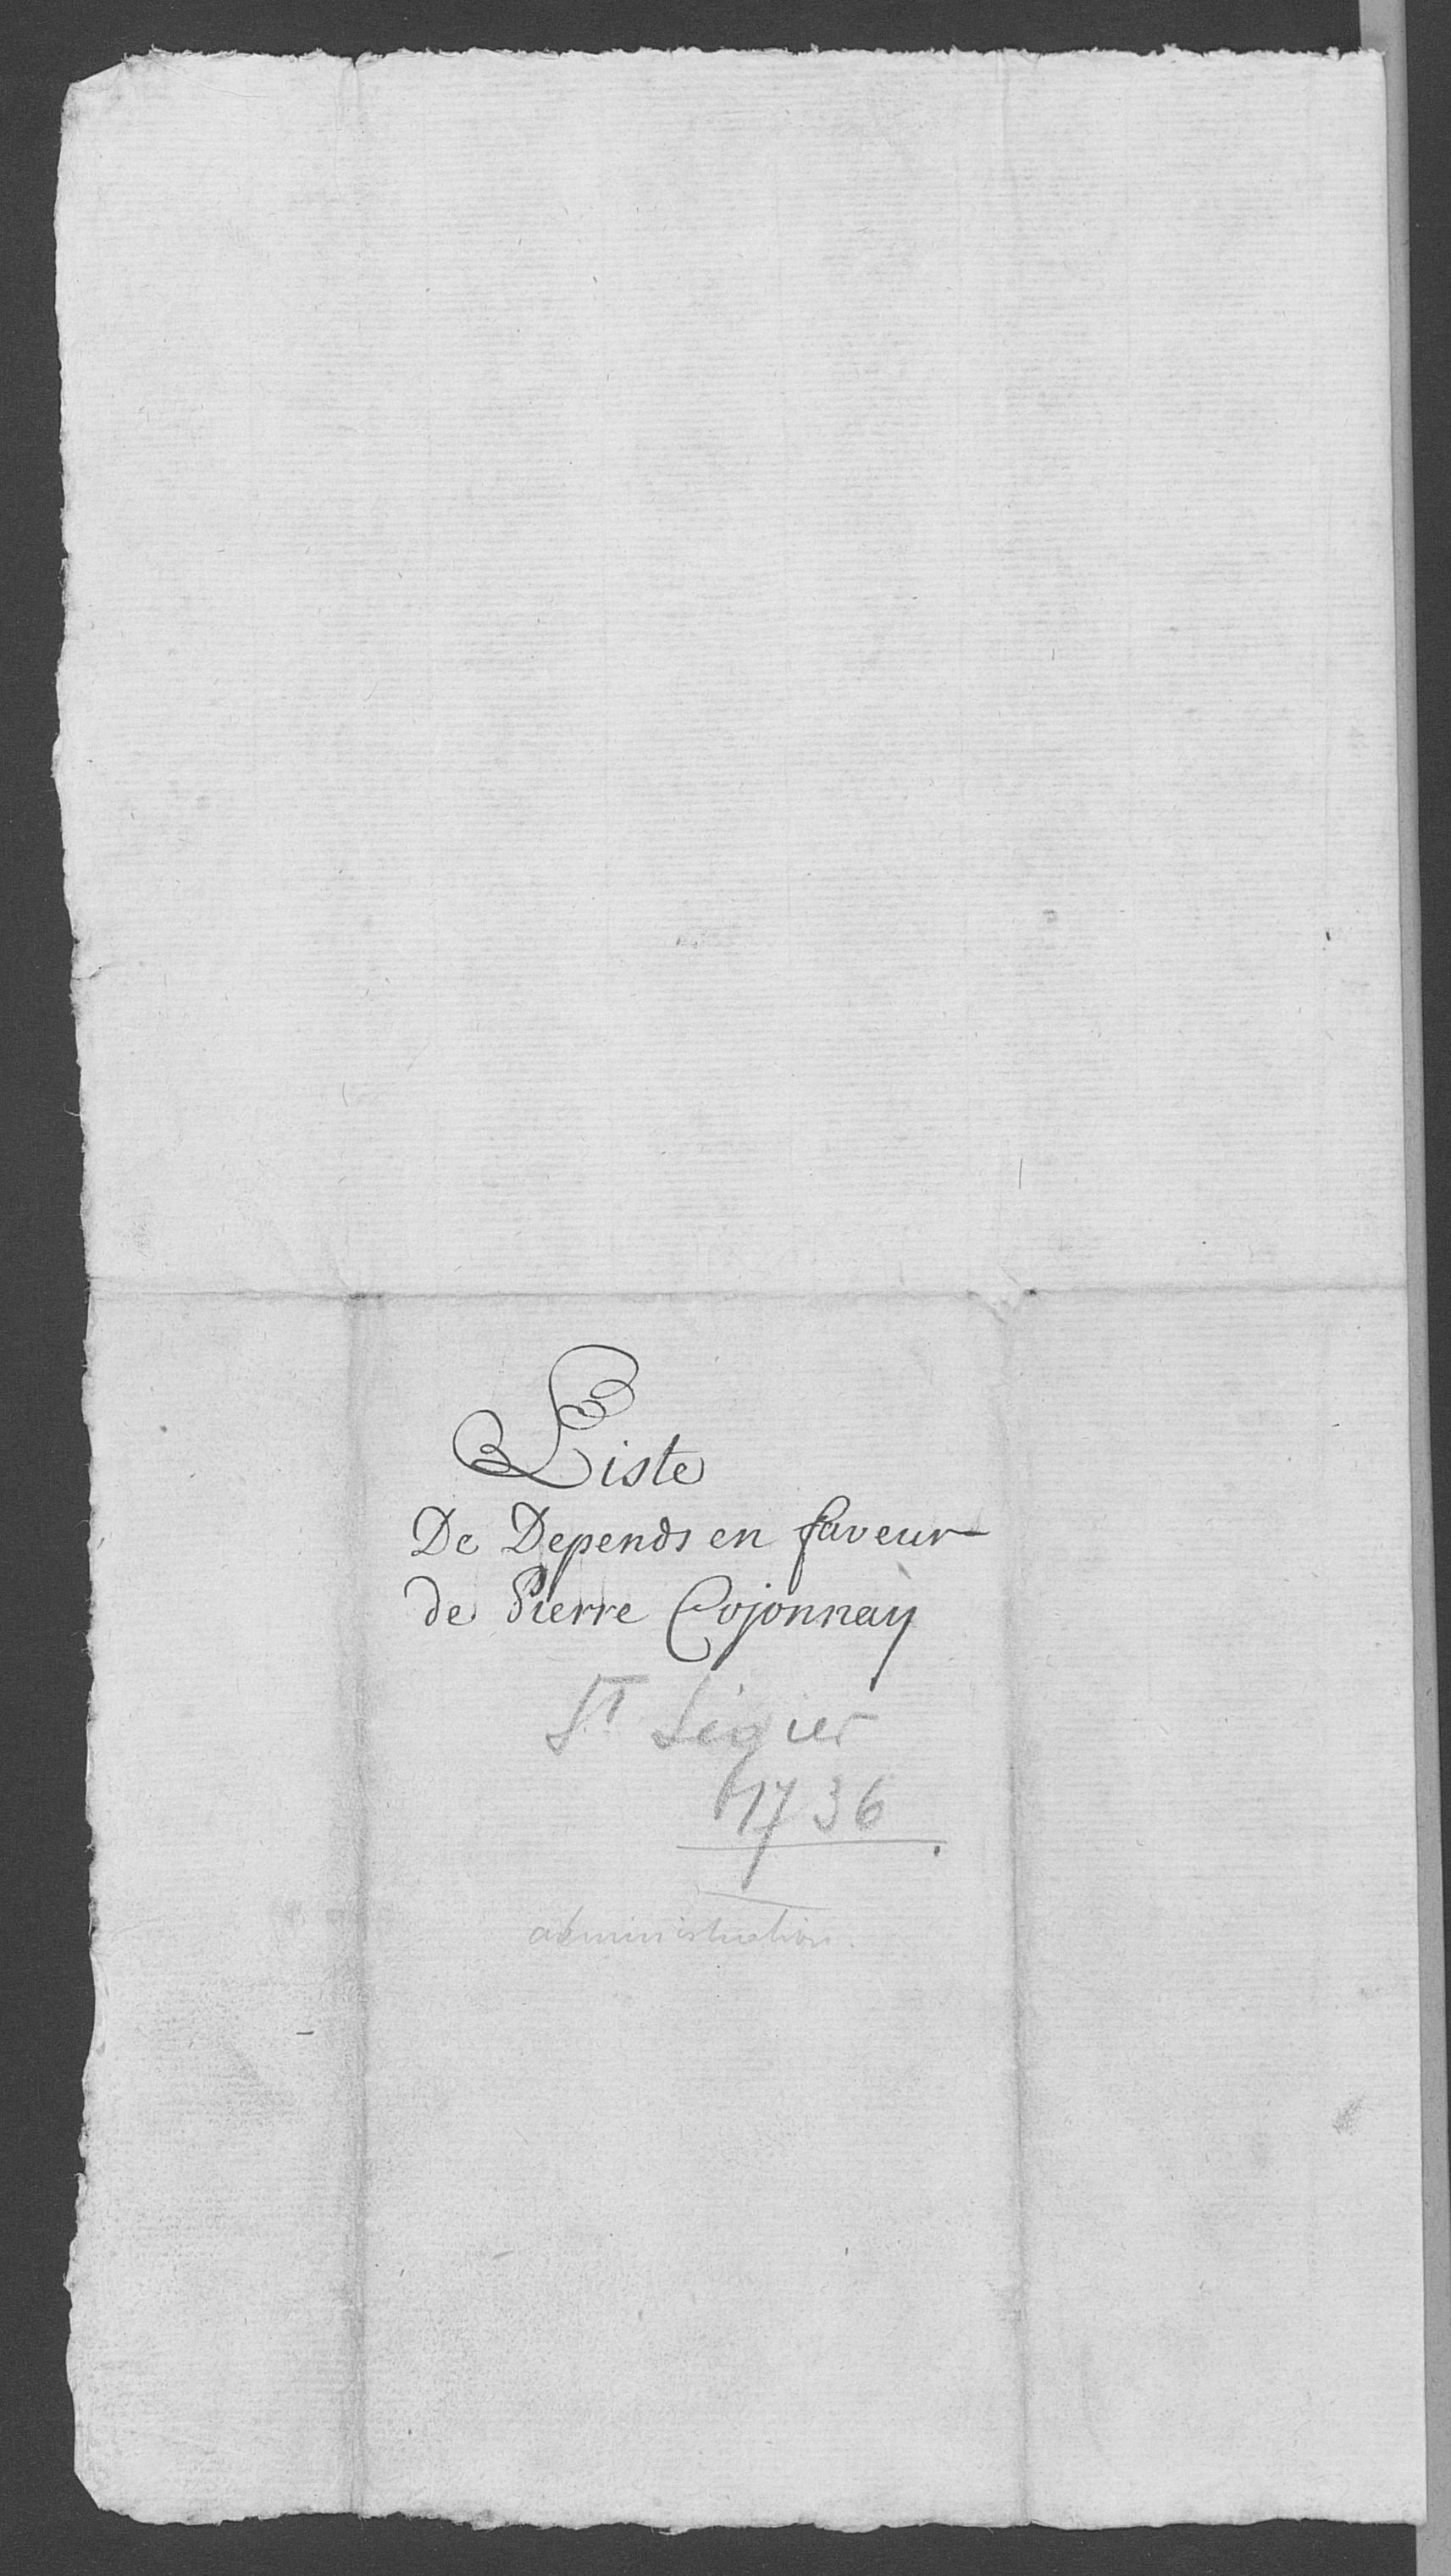 Liste
De Depends en faveur
de Pierre Cojonnay
St Légier
1736
administration.